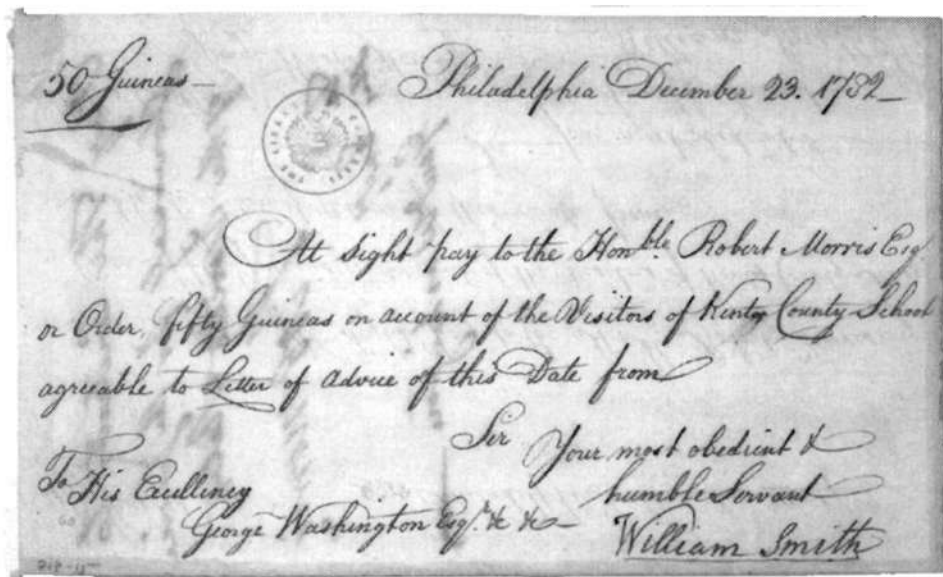 50 Guineas—
Philadelphia December 23. 1782—
At Sight pay to the Honble. Robert Morris Esqr
or Order, fifty Guineas on account of the Visitors of Kent County School
agreable to Letter of advice of this Date from
Sir Your most obedient &
humble Servant
William Smith
To His Excellency
George Washington Esqr. &c &c—